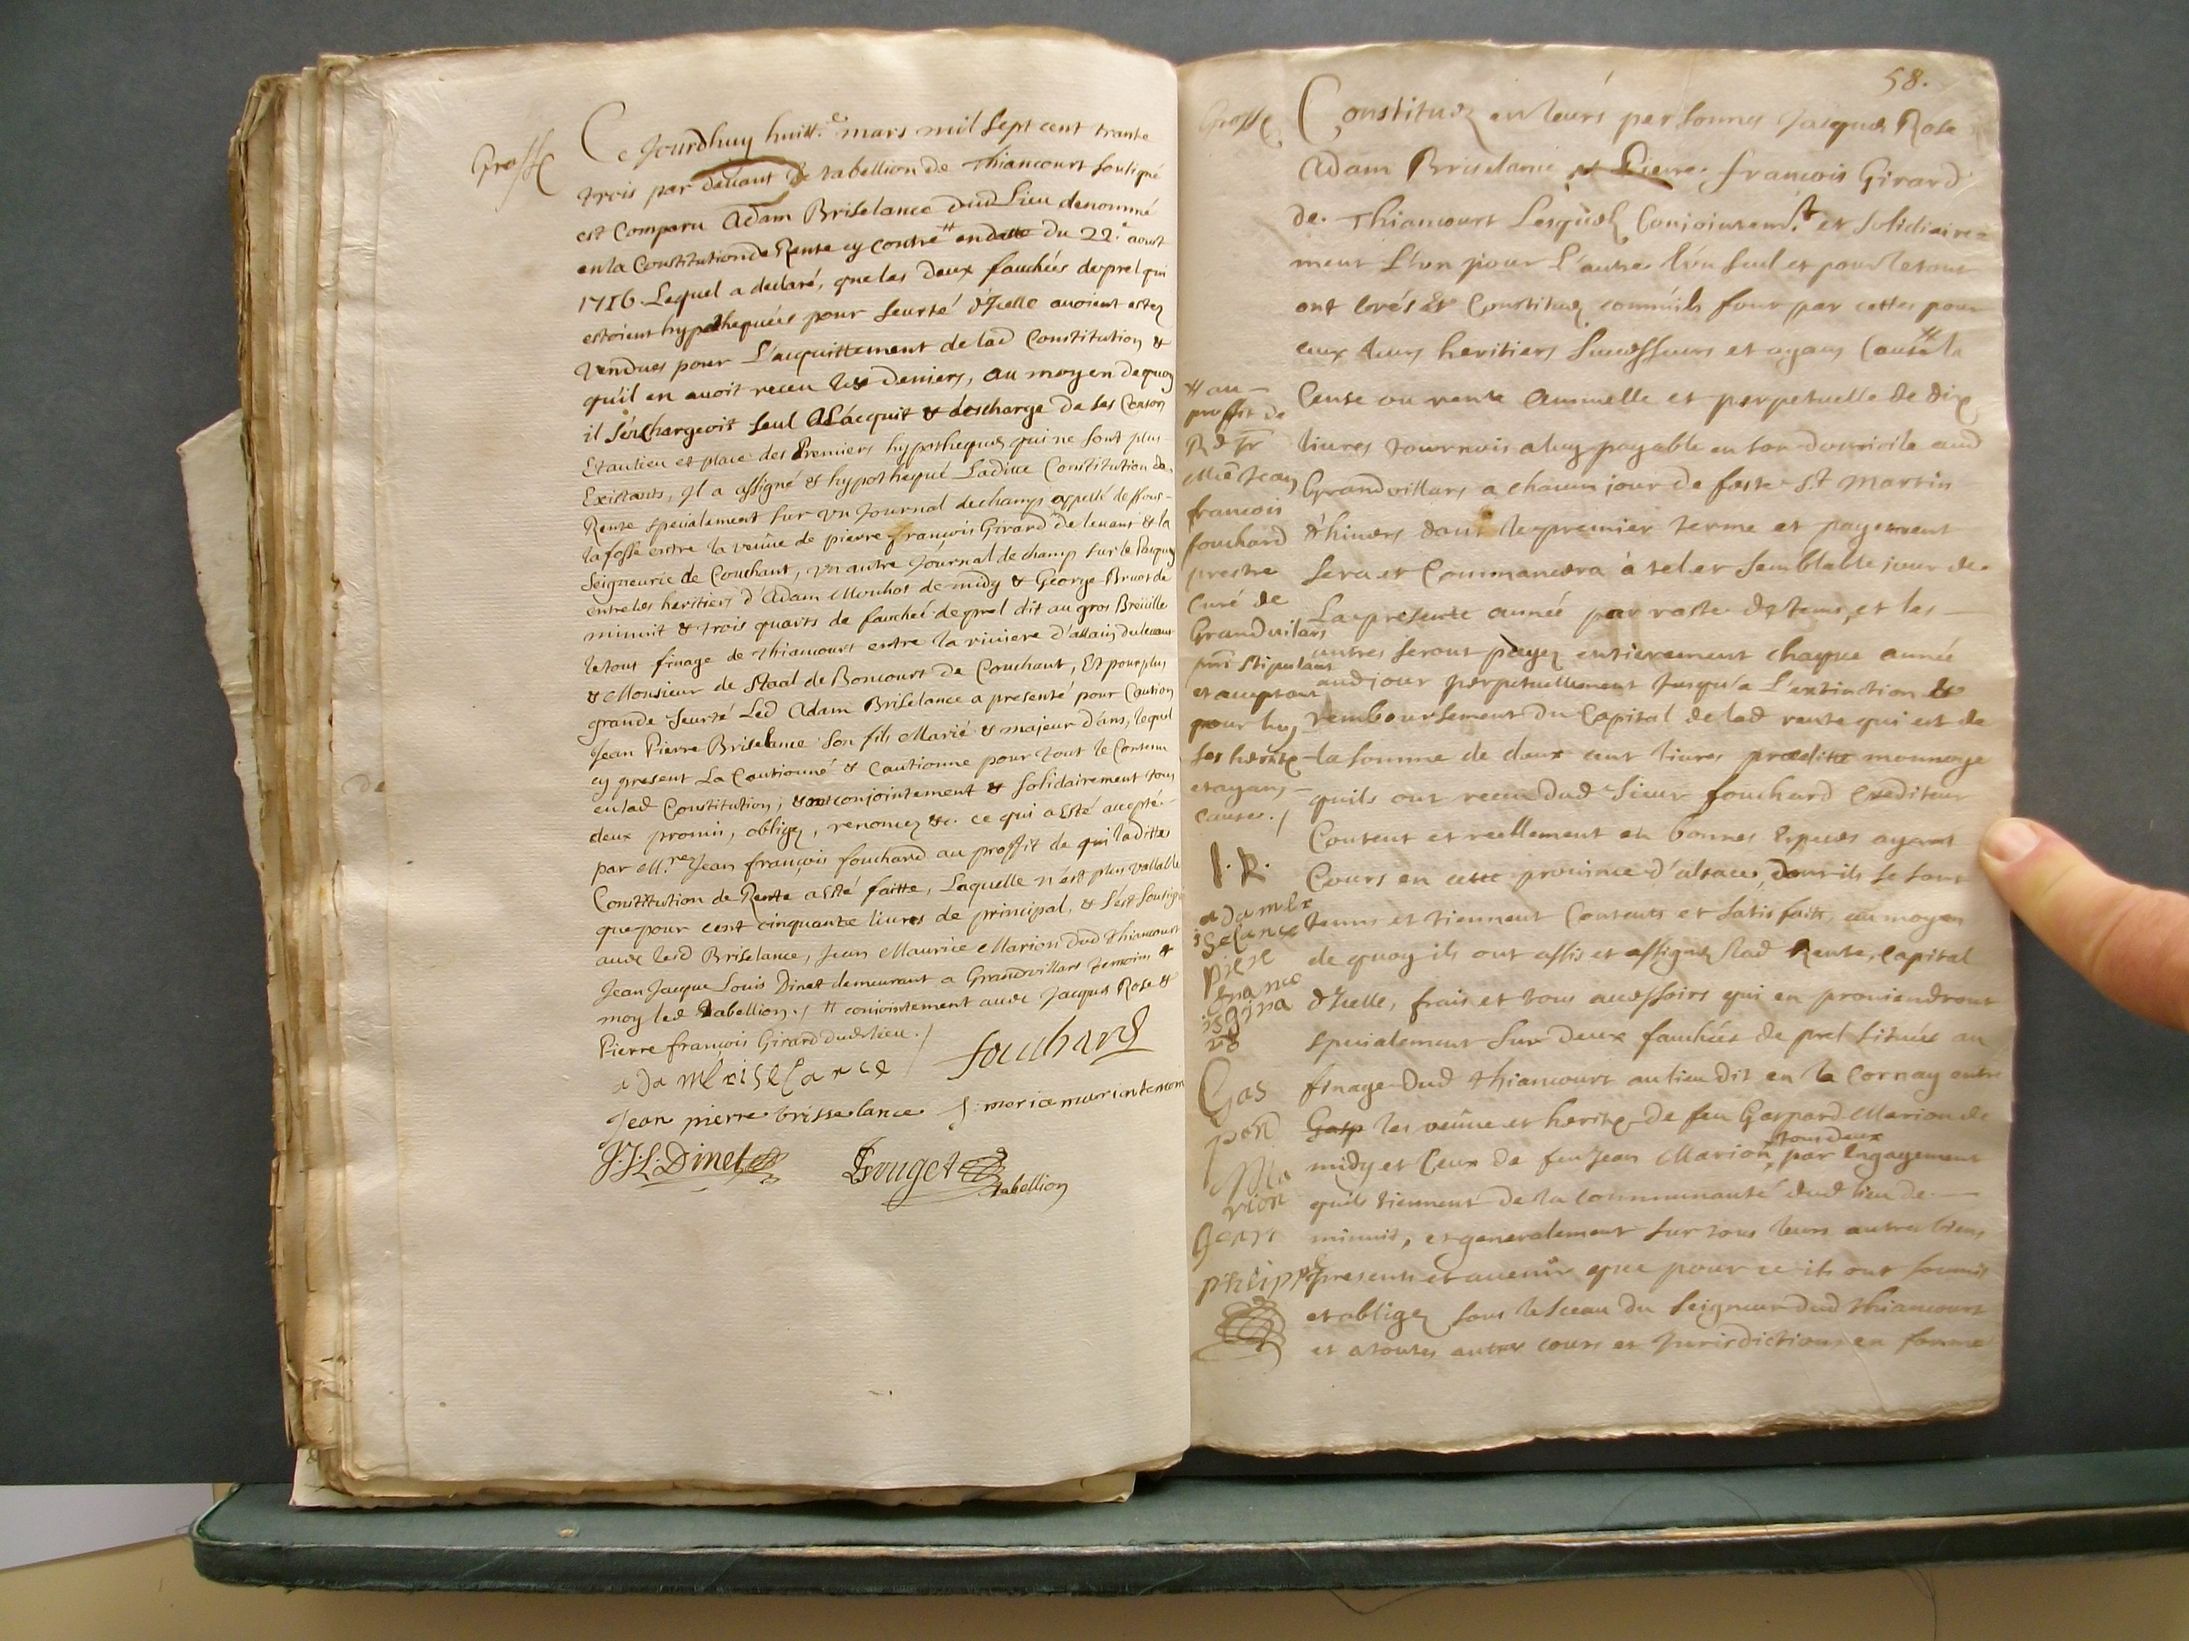 Grosse
Ce Jourdhuy huitt.e mars mil sept cent trante
trois par devant le tabellion de Thiancourt soutigné
est Comparu Adam Briselance dud Lieu denommé
en la Constitution de Rente cy contre # en datte du 22.e aoust
1716. Lequel a declaré, que les deux fauchées de prel qui
estoient hypothequées pour seurté d'Icelle avoient estez
vendues pour L'acquittement de lad Constitution &
qu'il en avoit receu les deniers, au moyen de quoy
il s'en chargeoit seul A L'acquit & descharge de ses Conson
Et au lieu et place des Premiers hypotheques qui ne sont plus
Existants, Il a assigné & hypothequé Laditte Constitution de
Rente specialement sur un Journal de champs appellé dessous
la fosse entre la veuve de pierre françois Girard de levant & la
Seigneurie de Couchant, un autre Journal de champ sur le Pasquy
entre les heritiers d'Adam Mouhot de midy & George Bruot de
minuit & trois quarts de fauchée de prel dit au gros Breüille
le tout finage de thiancourt entre la riviere d'allain du levant
& Monsieur de Staal de Boncourt de Couchant, Et pour plus
grande seurté Led Adam Briselance a presenté pour Caution
Jean Pierre Briselance son fils Marié & majeur d'ans, lequel
cy present La Cautionné & Cautionne pour tout le Contenu
en lad Constitution, & ont conjointement & solidairement tous
deux promis, obligez, renoncez &c. ce qui a esté accepté
par M.re Jean françois fouchard au proffit de qui laditte
Constitution de Rente a esté faitte, Laquelle n'est plus vallable
que pour cent cinquante livres de principal, & s'est soutigné
avec led Briselance, Jean Maurice Marion dud thiancourt
Jean Jacque Louis Dinet demeurant a Grandvillars temoins &
moy led tabellion./ # conjointement avec Jacques Rose &
Pierre françois Girard dud lieu./
adam briselance fouchard
Jean pierre brisselance J: morice marion temoin
J.J.L. Dinet Bouget
tabellion
58.
Grosse
Constituez en leurs personnes Jacques Rose
Adam Briselance et Pierre françois Girard
de Thiancourt Lesquels Conjointem.t et solidiaire=
ment L'un pour L'autre l'un seul et pour le tout
ont créés & Constituez comm'ils font par cettes pour
eux leurs heritiers successeurs et ayans Cause # la
Cense ou rente Annuelle et perpetuelle de dix
livres tournois a luy payable en son domicile aud
Grandvillars a chacun jour de feste S.t Martin
d'hivers dont le premier terme et payement
sera et Commancera à tel et semblable jour de
La presente année par raste de tems, et les
autres seront payez entierement chaque année
aud jour perpetuellement Jusqu'a L'extinction &
remboursement du Capital de lad rente qui est de
la somme de deux cent livres preditte monnoye
quils ont receu dud Sieur fouchard Crediteur
Content et reellement en bonnes Especes ayant
Cours en cette province d'alsace, dont ils se sont
tenus et tiennent Contents et satisfaits, au moyen
de quoy ils ont assis et assignez lad Rente, Capital
d'Icelle, frais et tous accessoirs qui en proviendront
specialement sur deux fauchées de prel situées au
finage dud thiancourt au lieu dit en la Cornay entre
Gasp les veuve et herit. de feu Gaspard Marion de
midy et Ceux de feu Jean Marion, tous deux par Engagement
quils tiennent de la Communauté dud lieu de
minuit, et generalement sur tous leurs autres biens
presents et avenir que pour ce ils ont soumis
et obligez sous le Sceau du Seigneur dud thiancourt
et a toutes autres cours et Jurisdictions en forme
# au
proffit de
R d Sr
M.e Jean
francois
fouchard
prestre
Curé de
Grandvilars
prnt stipulant
et acceptant
pour luy
ses herite
et ayans
cause./
J. R.
adam br
iselance
piere
frances
girard
Gas
pard
Ma
rion
Jean
philippe